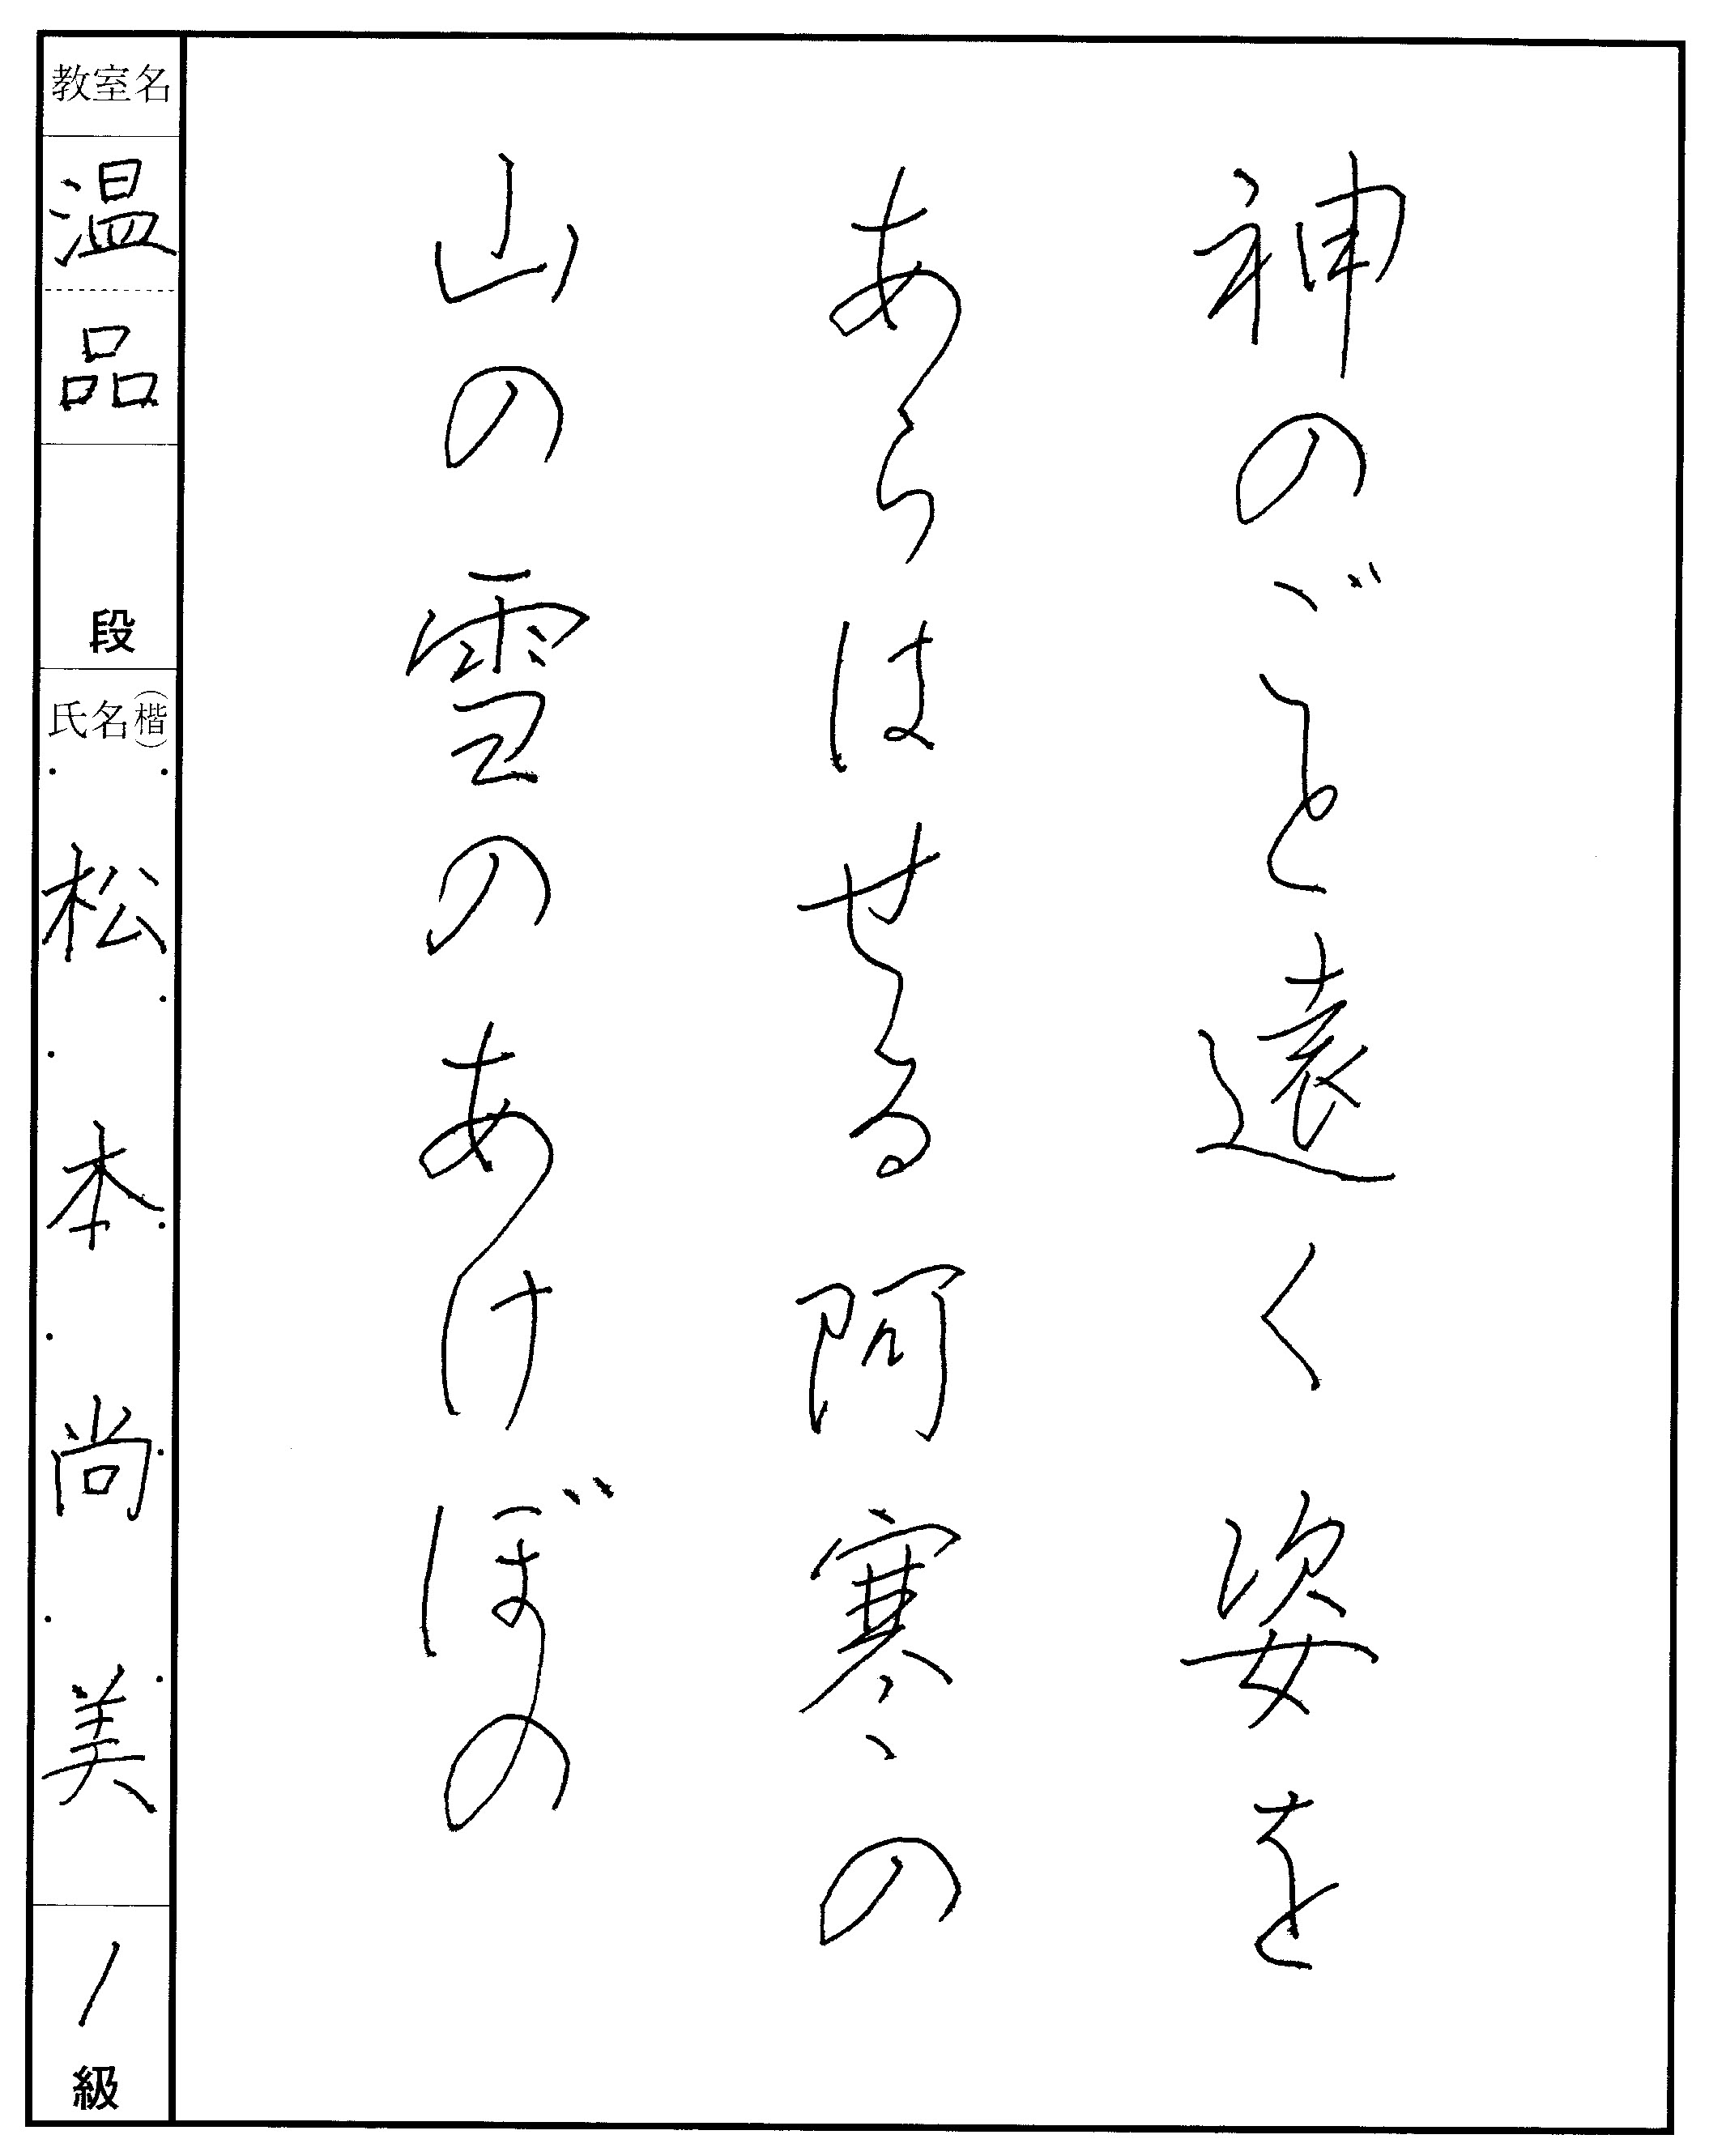 神のごと遠く姿を
あらはせる阿寒の
山の雪のあけぼの
教室名
温品
段
氏名(楷)
松本尚美
1級